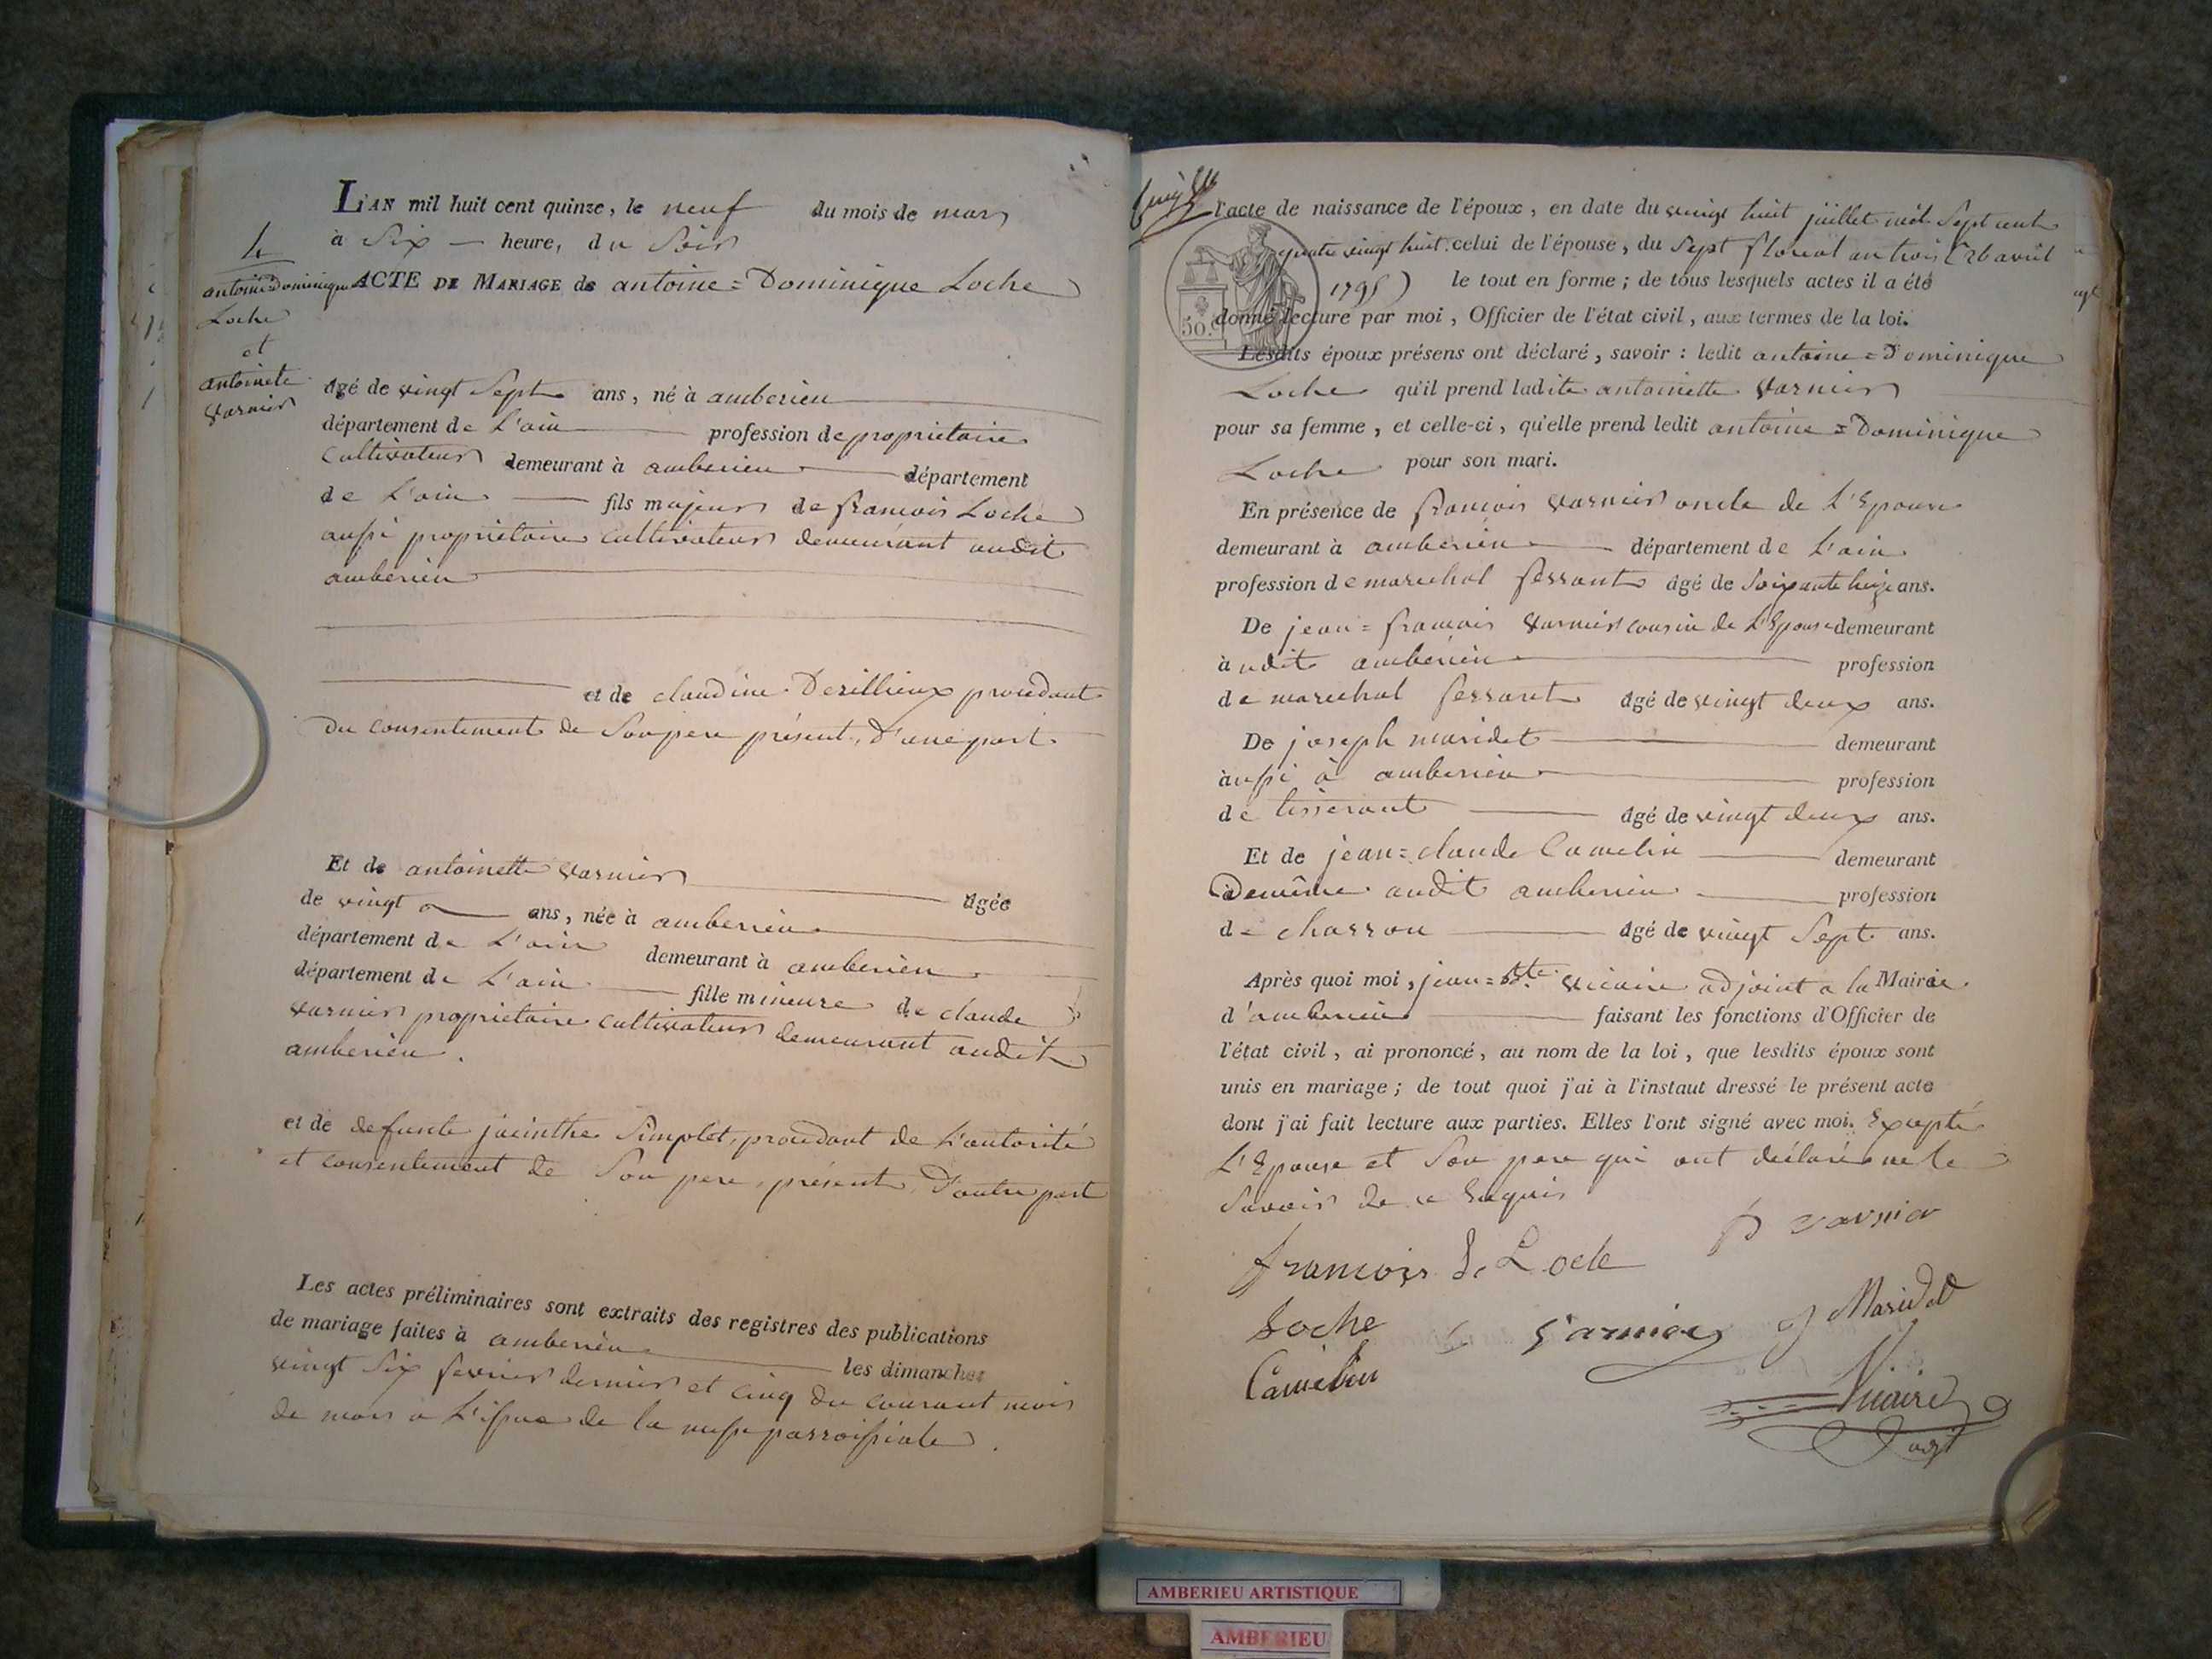 4
antoine=Dominique
Loche
et
antoinete
varnier
L'AN mil huit cent quinze, le neuf du mois de mars
à Six — heure, du Soir
ACTE DE MARIAGE de antoine=Dominique Loche
âgé de vingt Sept ans, né à amberieu
département de L'ain profession de proprietaire
Cultivateur demeurant à amberieu département
de L'ain fils majeur de francois Loche
aussi proprietaire cultivateur demeurant audit
amberieu
et de claudine Derillieux procedant
du consentement de Son pere présent, d'une part
Et de antoinette varnier âgée
de vingt ans, née à amberieu
département de L'ain demeurant à amberieu
département de L'ain fille mineure de claude
varnier proprietaire cultivateur demeurant audit
amberieu.
et de defunte jacinthe Simplet, procedant de L'autorité
et consentement de Son pere, présent, D'autre part
Les actes préliminaires sont extraits des registres des publications
de mariage faites à amberieu les dimanches
vingt Six fevrier dernier et Cinq du courant mois
de mars a L'issue de la messe parroissiale.
l'acte de naissance de l'époux, en date du vingt huit juillet mil Sept cent
quatre vingt huit. celui de l'épouse, du Sept floreal an trois (26 avril
1795) le tout en forme; de tous lesquels actes il a été
50.c donné lecture par moi, Officier de l'état civil, aux termes de la loi.
Lesdits époux présens ont déclaré, savoir : ledit antoine=Dominique
Loche qu'il prend ladite antoinette varnier
pour sa femme, et celle-ci, qu'elle prend ledit antoine=Dominique
Loche pour son mari.
En présence de francois varnier oncle de L'Epouse
demeurant à amberieu département de L'ain
profession de marechal ferrant âgé de Soixante ans.
De jean=francois varnier cousin de L'Epouse demeurant
àudit amberieu profession
de marechal ferrant âgé de vingt deux ans.
De joseph maridet demeurant
àussi à amberieu profession
de tisserant âgé de vingt deux ans.
Et de jean=claude Camelin demeurant
à Demême audit amberieu profession
de charron âgé de vingt Sept ans.
Après quoi moi, jean=Bte. vicaire adjoint a la Mairie
d'amberieu faisant les fonctions d'Officier de
l'état civil, ai prononcé, au nom de la loi, que lesdits époux sont
unis en mariage; de tout quoi j'ai à l'instaut dressé le présent acte
dont j'ai fait lecture aux parties. Elles l'ont signé avec moi. Excepté
L'Epouse et Son pere qui ont déclaré ne le
Savoir de ce Enquis
varnier
francois Loche
Loche varnier j Maridet
Camelin
Vicaire
adjt
AMBERIEU ARTISTIQUE
AMBERIEU